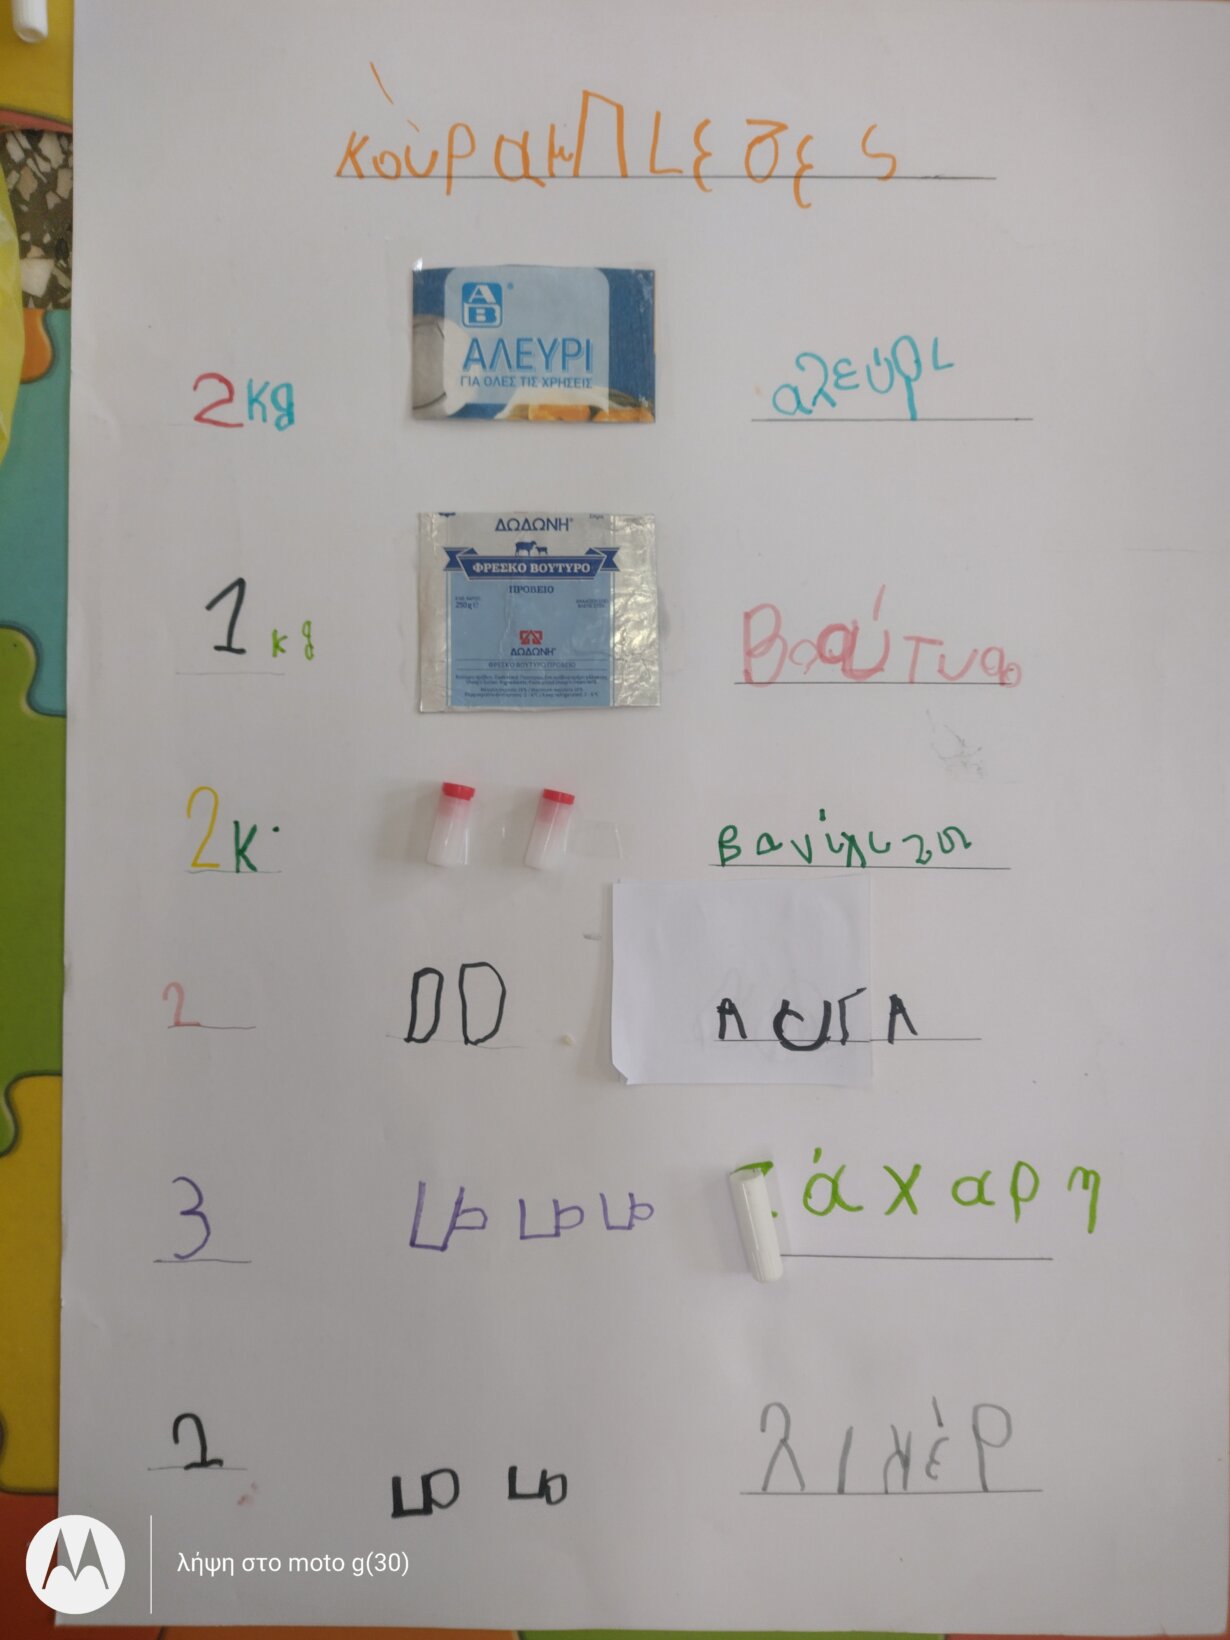 κούραμπιεδες
2 kg
AB
ΑΛΕΥΡΙ
ΓΙΑ ΟΛΕΣ ΤΙΣ ΧΡΗΣΕΙΣ
αλεύρι
1 kg
ΔΩΔΩΝΗ
ΦΡΕΣΚΟ ΒΟΥΤΥΡΟ
ΠΡΟΒΕΙΟ
250g e
ΔΩΔΩΝΗ
ΦΡΕΣΚΟ ΒΟΥΤΥΡΟ ΠΡΟΒΕΙΟ
Βούτυρο
2 κ.
2
3
άχαρη
2
λικέρ
λήψη στο moto g(30)